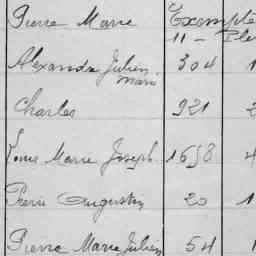 Pierre Marie Exempté
11 -
Alexandre Julien 304 1
Marie
Charles 921 2
Marie Joseph 1658 4
Pierre Augustin 20 1
Pierre Marie Julien 54 1